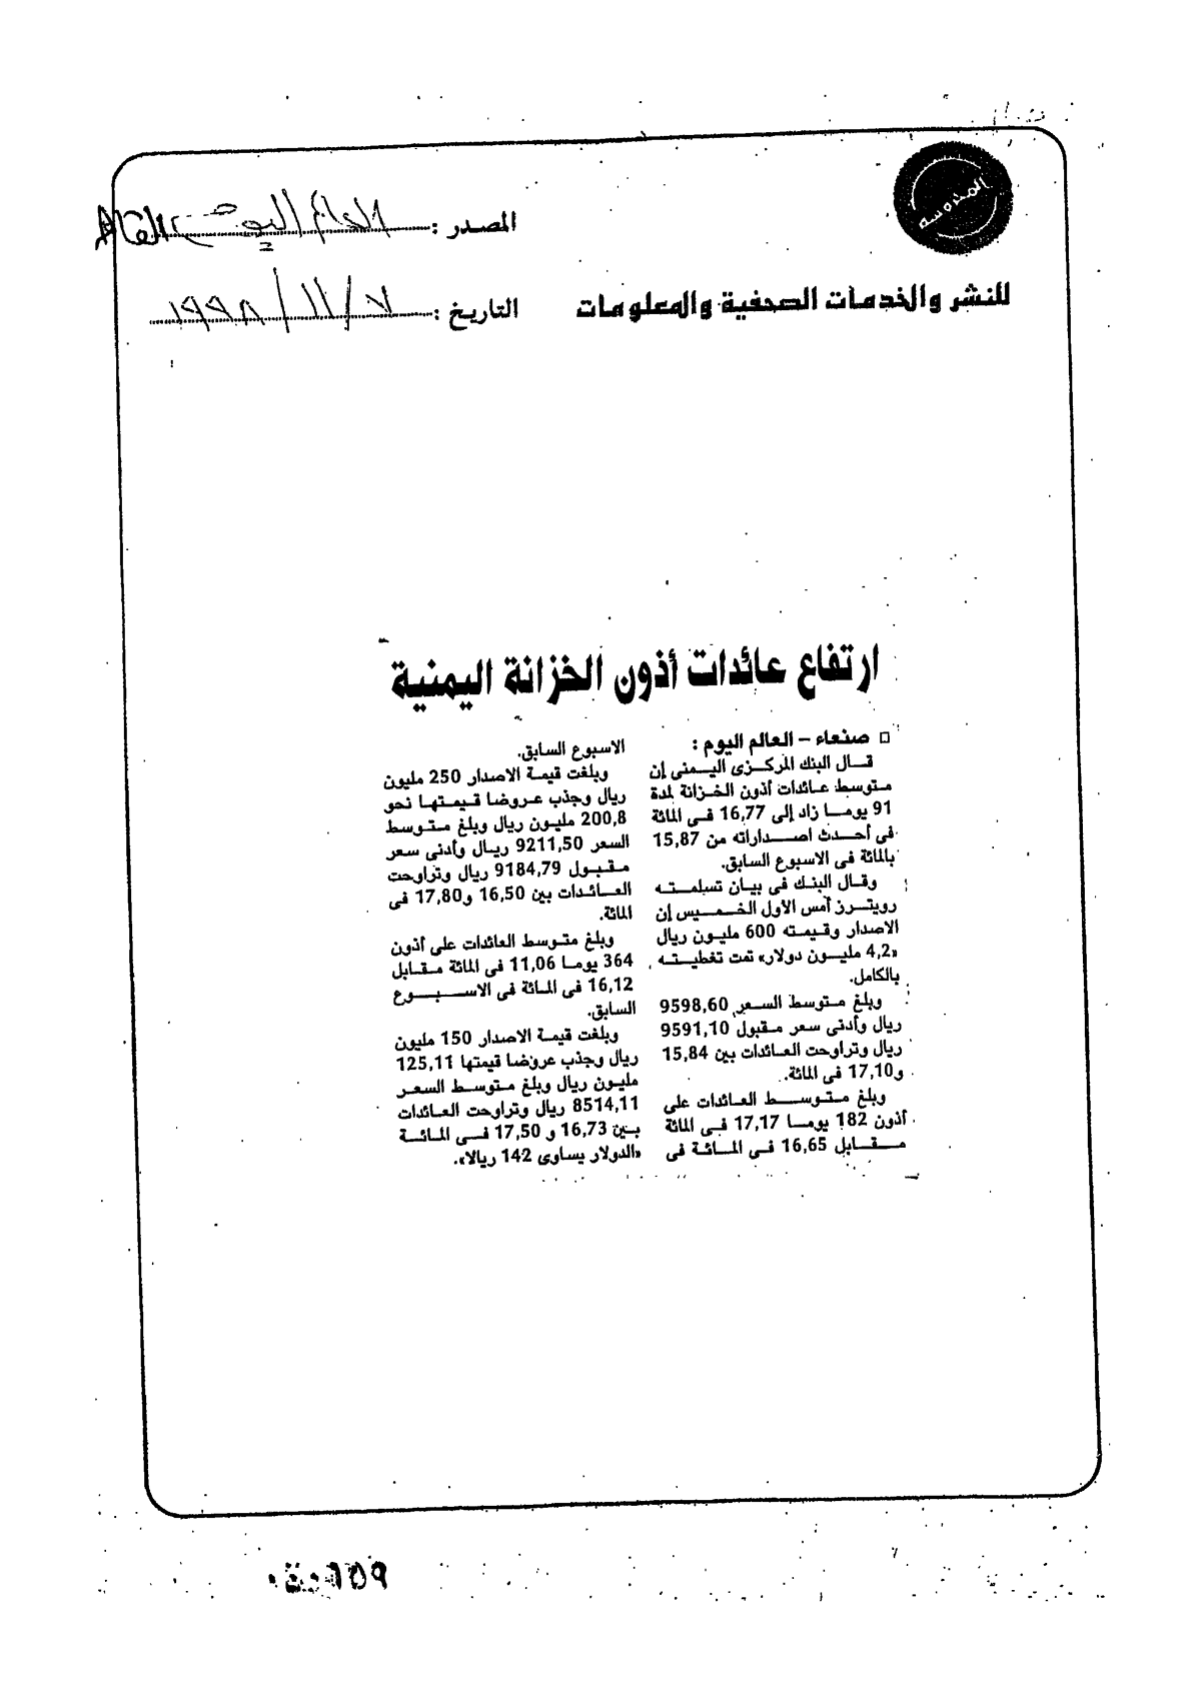 المحروسة
للنشر والخدمات الصحفية والمعلومات
المصدر : العالم اليوم القاهرة
التاريخ : ٧ / ١١ / ١٩٩٨
ارتفاع عائدات أذون الخزانة اليمنية
□ صنعاء – العالم اليوم :
قال البنك المركزى اليمنى إن
متوسط عائدات أذون الخزانة لمدة
91 يوما زاد إلى 16,77 فى المائة
فى أحدث اصداراته من 15,87
بالمائة فى الاسبوع السابق.
وقال البنك فى بيان تسلمته
رويترز أمس الأول الخميس إن
الاصدار وقيمته 600 مليون ريال
«4,2 مليون دولار» تمت تغطيته
بالكامل.
وبلغ متوسط السعر 9598,60
ريال وأدنى سعر مقبول 9591,10
ريال وتراوحت العائدات بين 15,84
و17,10 فى المائة.
وبلغ متوسط العائدات على
أذون 182 يوما 17,17 فى المائة
مقابل 16,65 فى المائة فى
الاسبوع السابق.
وبلغت قيمة الاصدار 250 مليون
ريال وجذب عروضا قيمتها نحو
200,8 مليون ريال وبلغ متوسط
السعر 9211,50 ريال وأدنى سعر
مقبول 9184,79 ريال وتراوحت
العائدات بين 16,50 و17,80 فى
المائة.
وبلغ متوسط العائدات على أذون
364 يوما 11,06 فى المائة مقابل
16,12 فى المائة فى الاسبوع
السابق.
وبلغت قيمة الاصدار 150 مليون
ريال وجذب عروضا قيمتها 125,11
مليون ريال وبلغ متوسط السعر
8514,11 ريال وتراوحت العائدات
بين 16,73 و 17,50 فى المائة
«الدولار يساوى 142 ريالا».